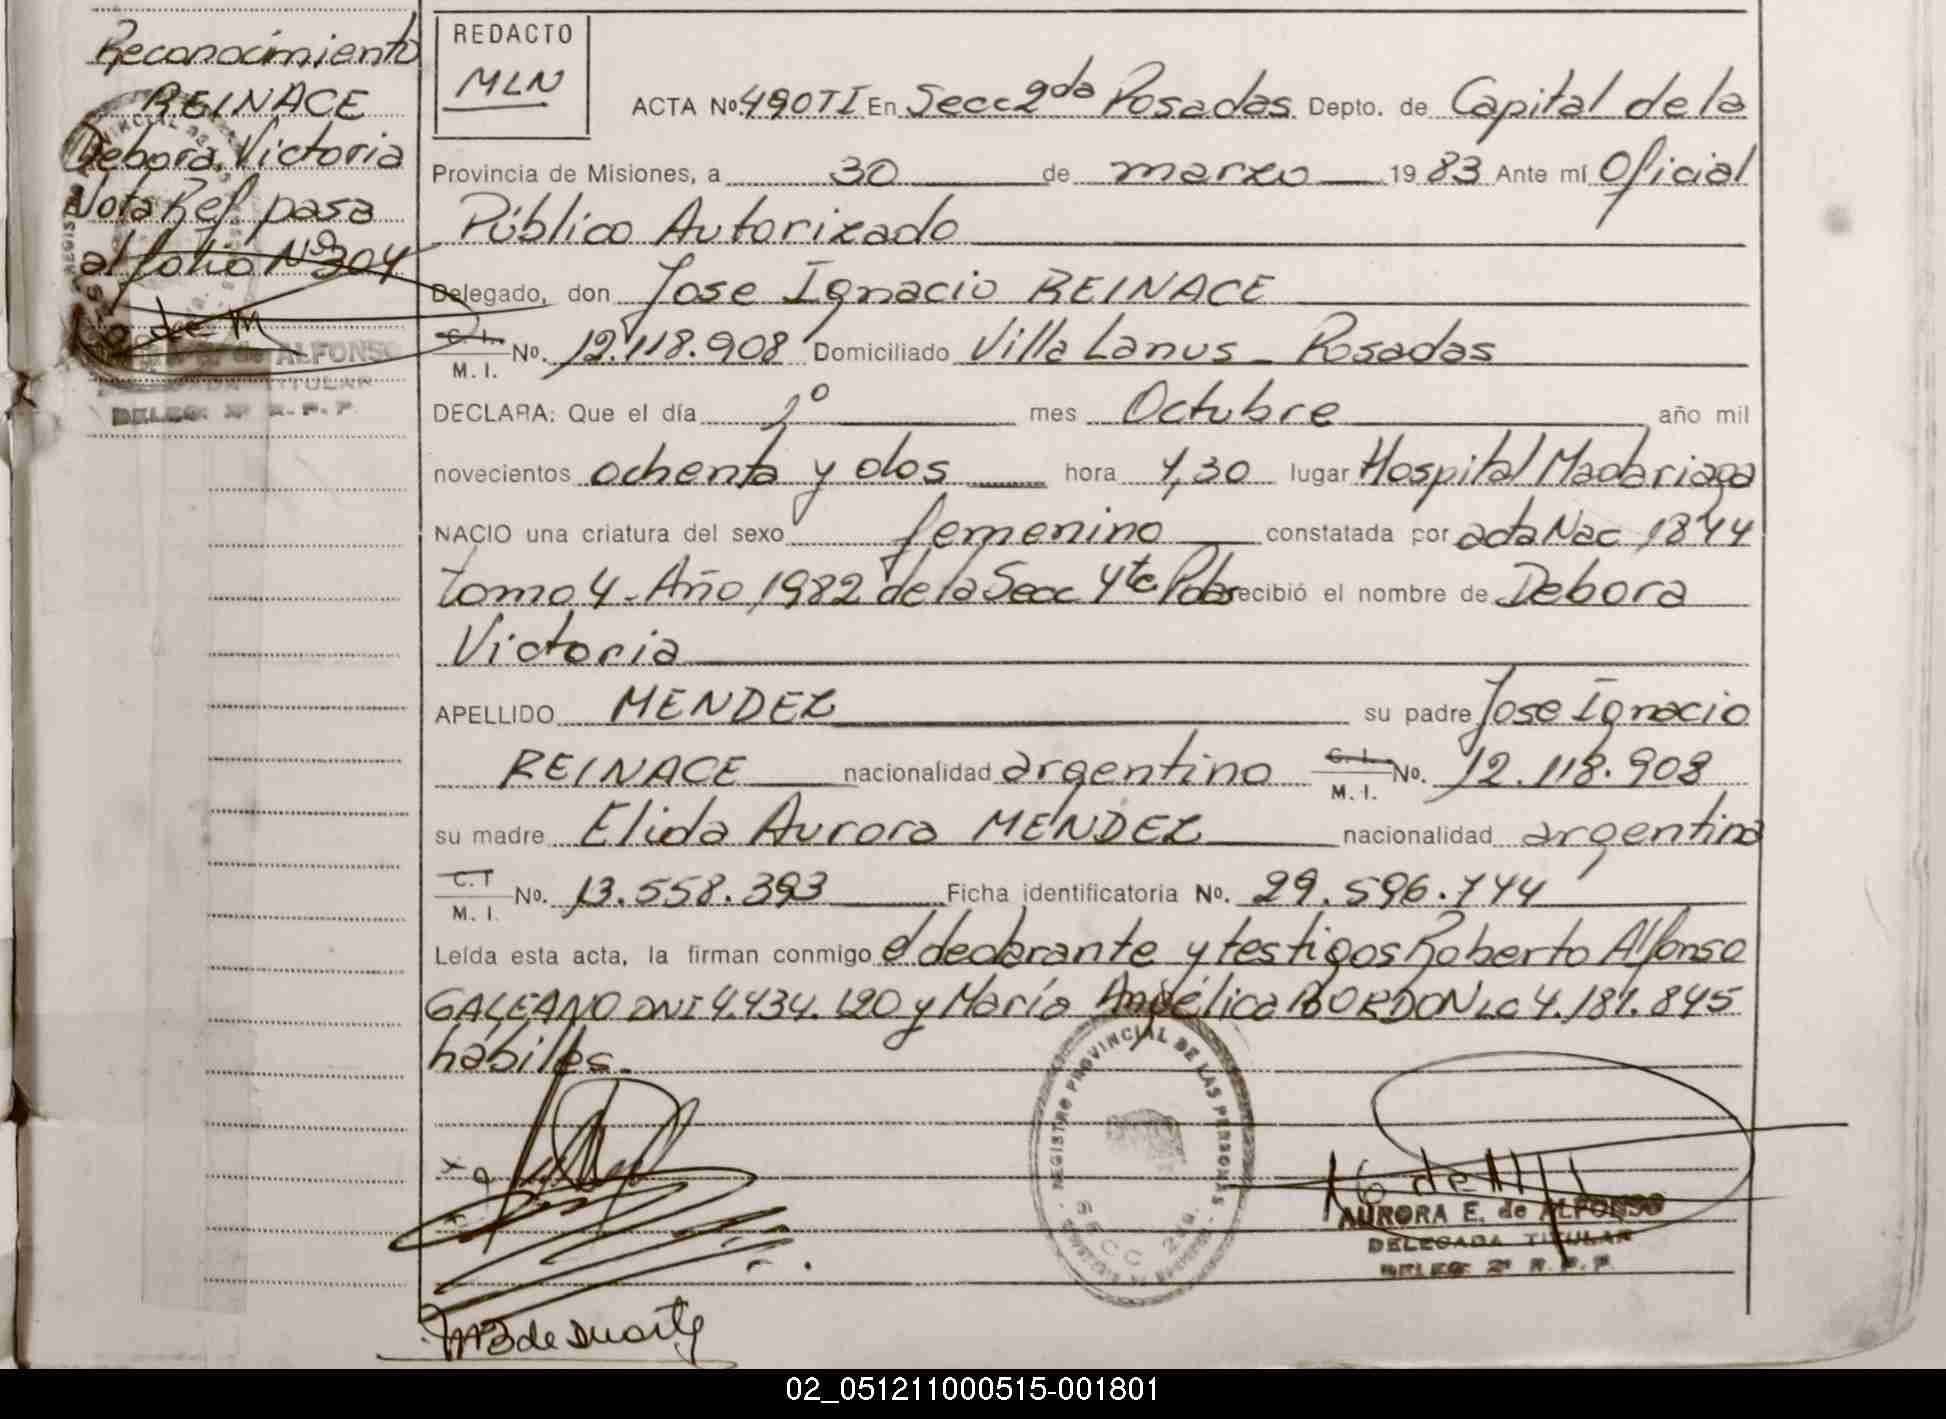 Reconocimiento
REINACE
Debora Victoria
Nota Ref. pasa
al folio Nº 304
de ALFONSO
TITULAR
DELEG. 2ª R. P. P.
REDACTO
MLN
ACTA Nº 490TI En Secc 2da Posadas Depto. de Capital de la
Provincia de Misiones, a 30 de marzo 1983 Ante mí Oficial
Público Autorizado
Delegado, don Jose Ignacio REINACE
C. I. M. I. No. 12.118.908 Domiciliado Villa Lanus - Posadas
DECLARA: Que el día 1º mes Octubre año mil
novecientos ochenta y dos hora 1,30 lugar Hospital Madariaga
NACIO una criatura del sexo femenino constatada por acta Nac 1844
tomo 4 - Año 1982 de la Secc 4ta Pdas recibió el nombre de Debora
Victoria
APELLIDO MENDEZ su padre Jose Ignacio
REINACE nacionalidad argentino C. I. M. I. No. 12.118.908
su madre Elida Aurora MENDEZ nacionalidad argentina
C. I M. I. No. 13.558.393 Ficha identificatoria No. 29.596.744
Leída esta acta, la firman conmigo el declarante y testigos Roberto Alfonso
GALEANO DNI 4.434.120 y María Angélica BORDON LC 4.187.845
hábiles.
REGISTRO PROVINCIAL DE LAS PERSONAS
SECC 2da.
AURORA E. de ALFONSO
DELEGADA TITULAR
DELEG. 2ª R. P. P.
MB de Duarte
02_051211000515-001801